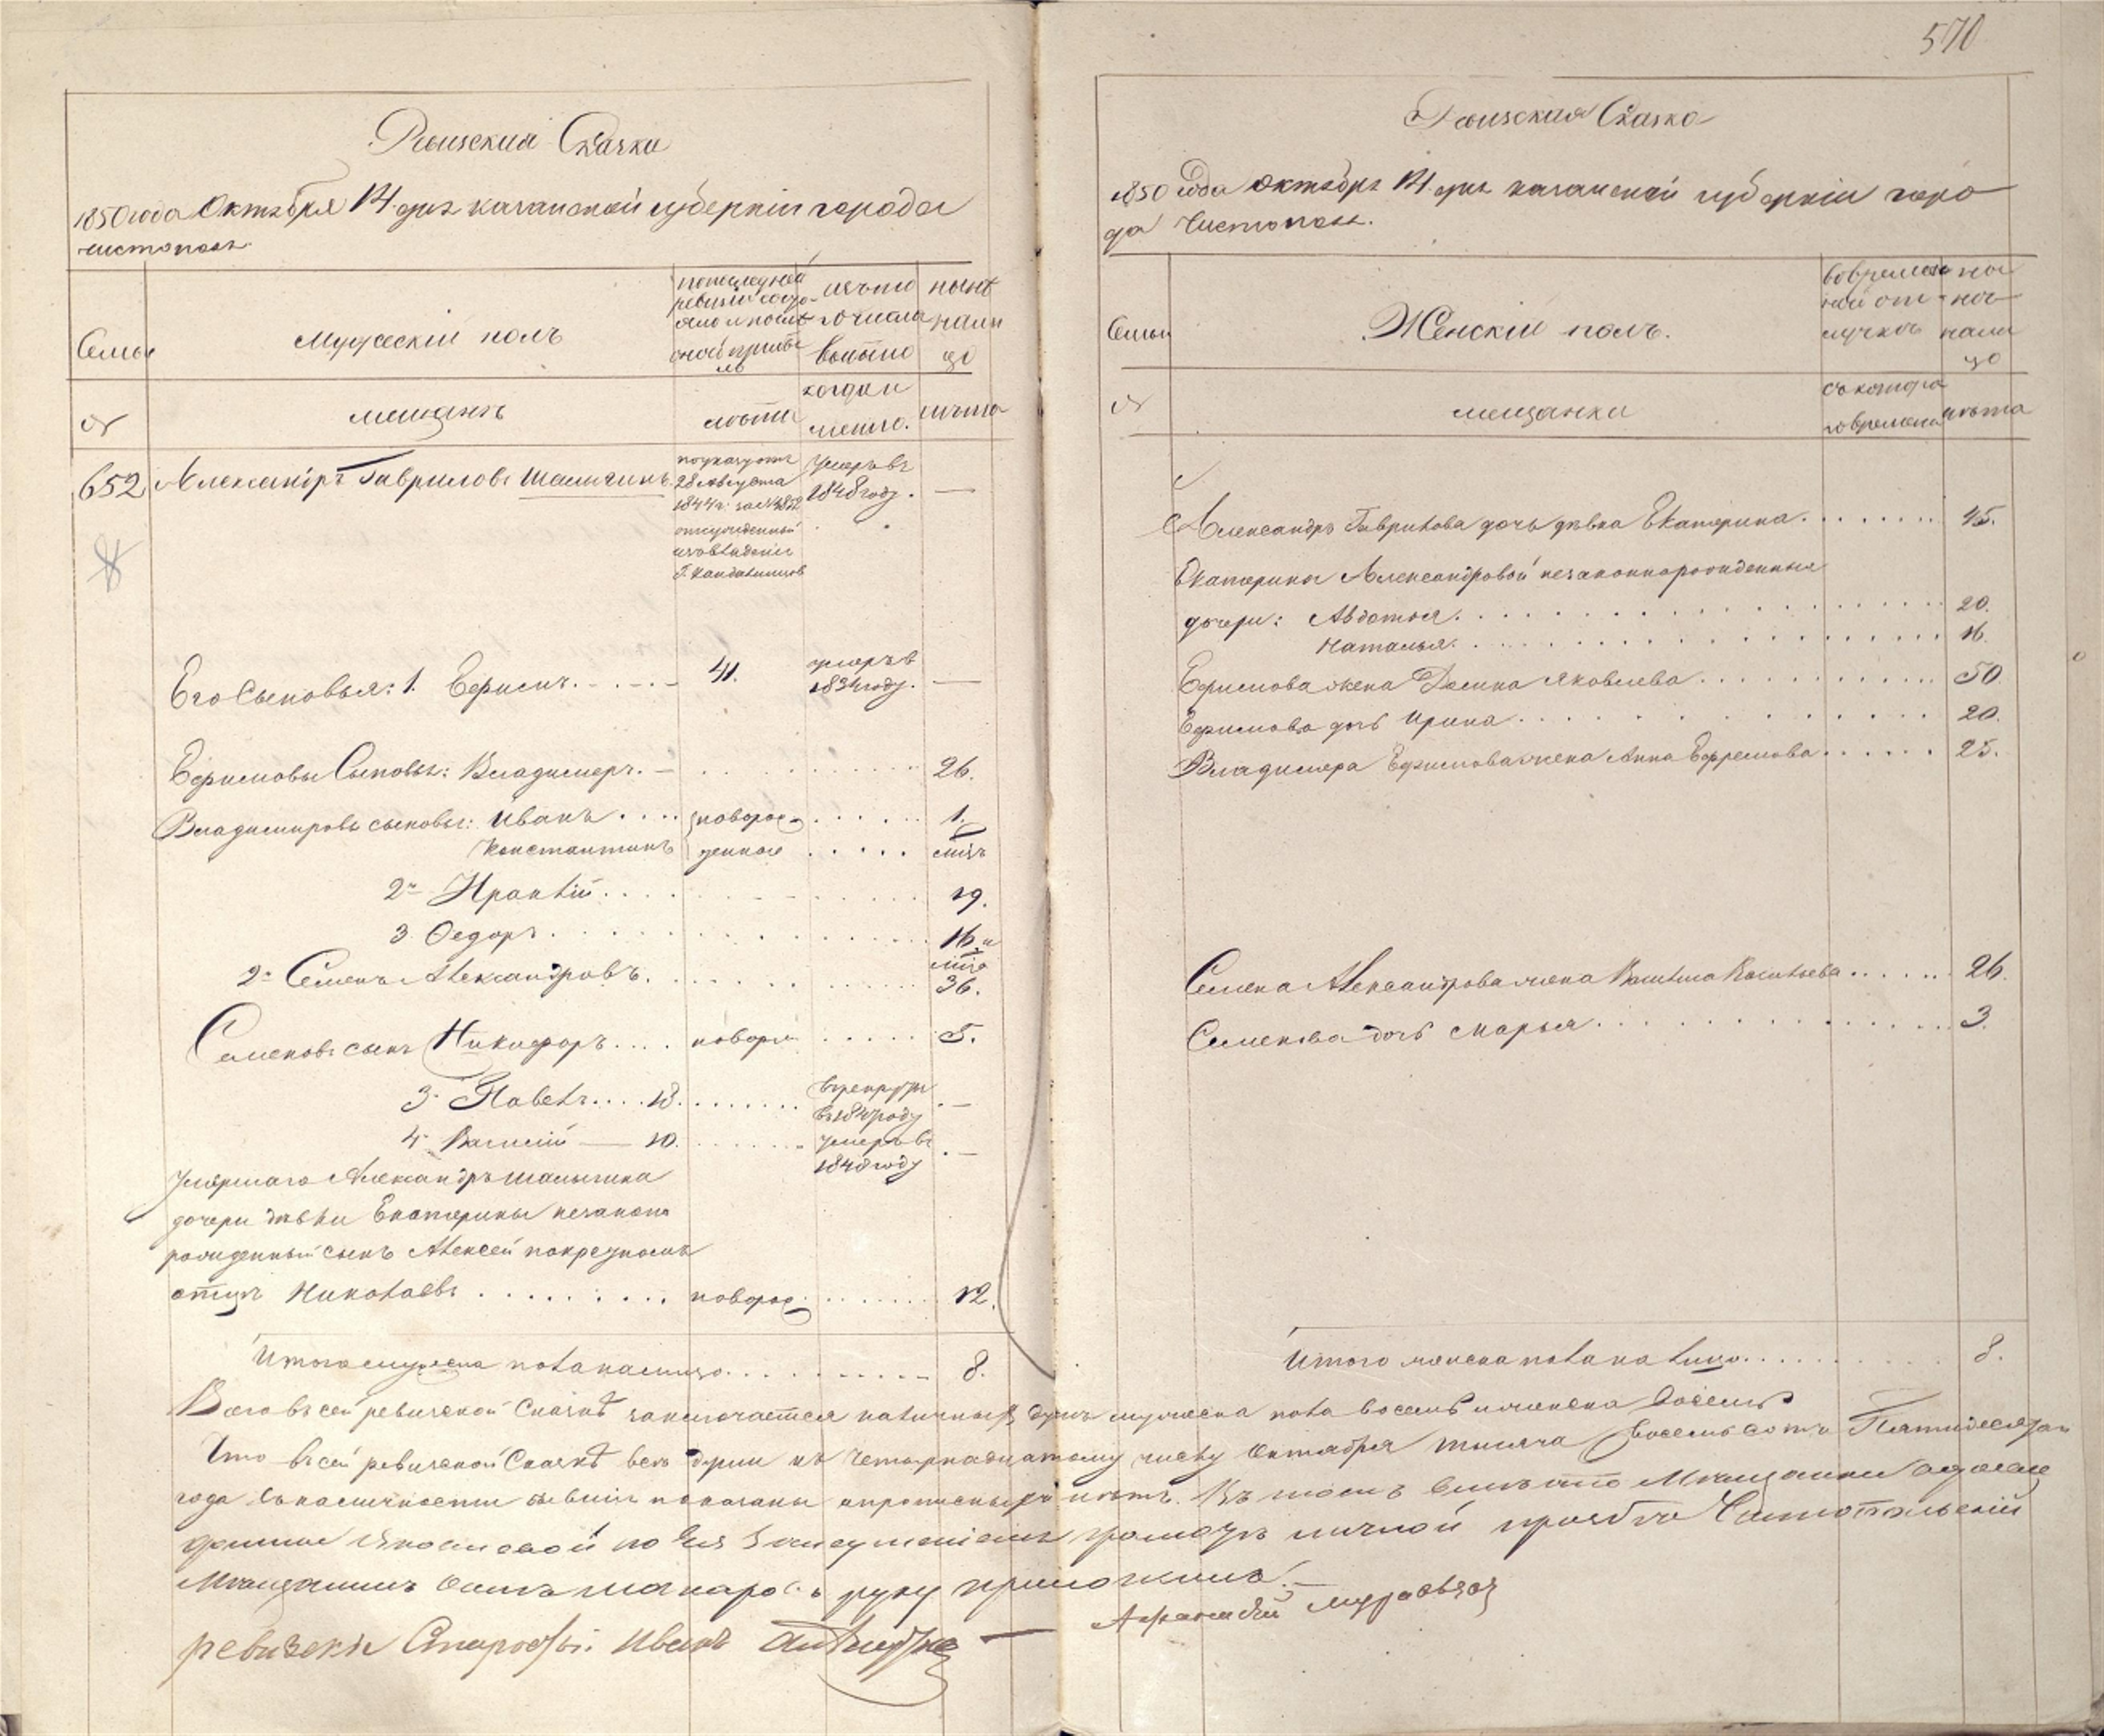 570
Ревизская Сказка
1850 года Октября 14 дня казанской губернии города
Чистополя
Семьи
Мужеский полъ
по последней
ревизии состо-
яло и после
оной прибы
ло
изъ того
числа
выбыло
ныне
на ли
цо
№
мещанъ
лета
когда и
лета
652
Александръ Гавриловъ Шалыгинъ
по указу отъ
28 Августа
1844 г. за №
отсужденный
изъ владения
Умеръ въ
1848 году. —
Его Сыновья: 1. Ефимъ
41.
умеръ в
1834 году. —
Ефимовы Сыновья: Владимеръ. 26.
Владимировы сыновья: Иванъ новорож 1.
Константинъ денные мцъ
2й Ираклий 19.
3 Федоръ 16 и
2й Семенъ Александровъ. 36.
Семеновъ сынъ Никифоръ новорж 5.
3й Павелъ 18. в рекруты
въ 1847 году —
4 Василий — 10. Умеръ въ
1848 году —
Умершаго Александръ Шалыгина
дочери девки Екатерины незакон
рожденный сынъ Алексей по крестномъ
отце Николаевъ новорож 12.
Итого мужеска пола налицо 8.
Ревизская Сказка
1850 года Октября 14 дня казанской губернии горо
да Чистополя.
Семьи
Женский полъ.
во времен
ной от-
лучке
на
лицо
№
мещанки
съ котора
го времени
лета
Александръ Гаврилова дочь девка Екатерина 45.
Екатерины Александровой незаконнорожденныя
дочери: Авдотья 20.
Наталья 16.
Ефимова жена Домна Яковлева 50
Ефимова дочь Ирина 20.
Владимера Ефимова жена Анна Ефремова 25.
Семена Александрова жена Васильева 26.
Семенова дочь Марья 3.
Итого женска пола на лицо 8.
Всего въ сей ревизской Сказкѣ заключается наличныхъ душъ мужеска пола восемь и женска восемь
Что въ сей ревизской Сказкѣ все души къ Четырнадцатому числу Октября тысяча восемь сотъ Пятидесятаго
года въ наличности бывшия показаны и прописныхъ нетъ. Въ томъ вместо Мещанки вдовы
Домны Яковлевой по Ея неумению грамоте личной прозьбе Чистопольский
Мещанинъ руку приложилъ. —
ревизски Староста Иванъ